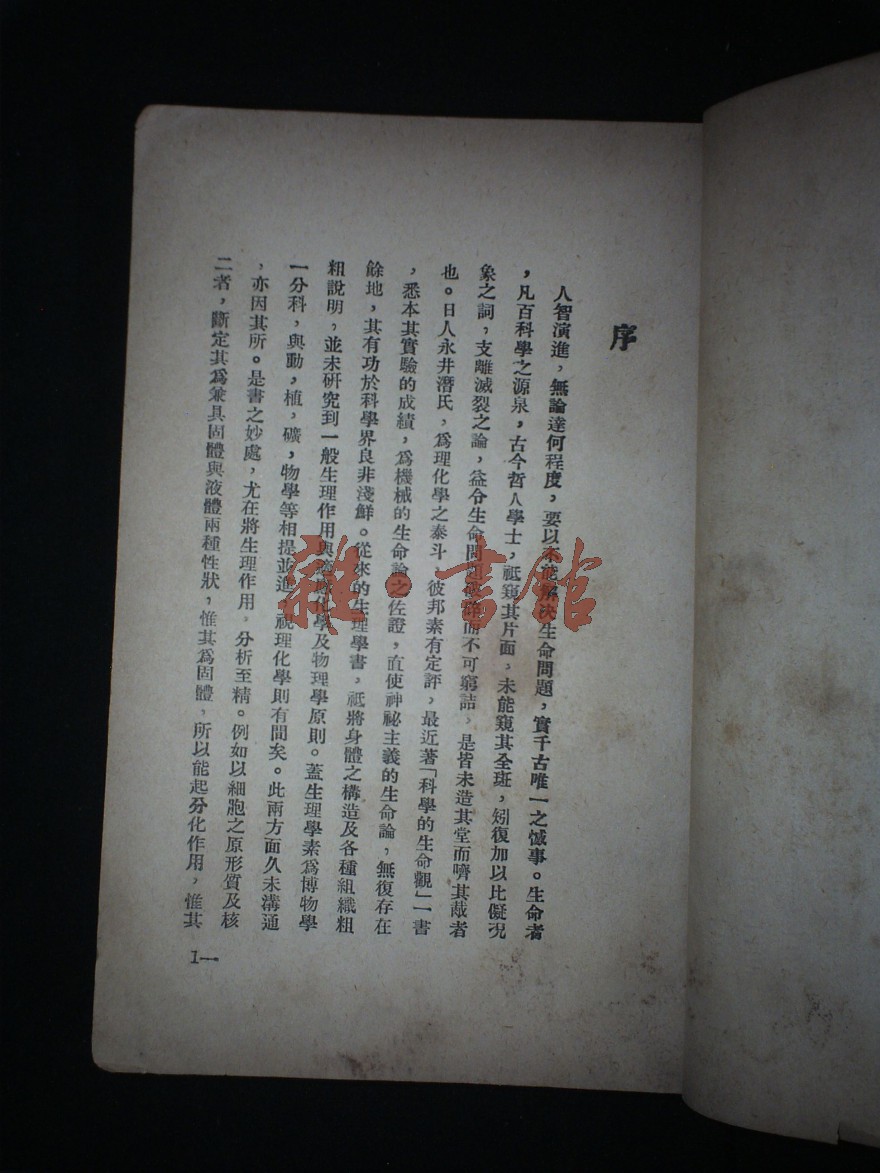 序
人智演進，無論達何程度，要以未能解決生命問題，實千古唯一之憾事。生命者
，凡百科學之源泉，古今哲人學士，祗窺其片面，未能窺其全斑，矧復加以比儗況
象之詞，支離滅裂之論，益令生命問題 而不可窮詰，是皆未造其堂而嚌其胾者
也。日人永井潛氏，爲理化學之泰斗，彼邦素有定評，最近著「科學的生命觀」一書
，悉本其實驗的成績，爲機械的生命論之佐證，直使神祕主義的生命論，無復存在
餘地，其有功於科學界良非淺鮮。從來的生理學書，祗將身體之構造及各種組織粗
粗說明，並未研究到一般生理作用與 化學及物理學原則。蓋生理學素爲博物學
一分科，與動，植，礦，物學等相提並進，視理化學則有間矣。此兩方面久未溝通
，亦因其所。是書之妙處，尤在將生理作用，分析至精。例如以細胞之原形質及核
二者，斷定其爲兼具固體與液體兩種性狀，惟其爲固體，所以能起分化作用，惟其
1—
雜·書館